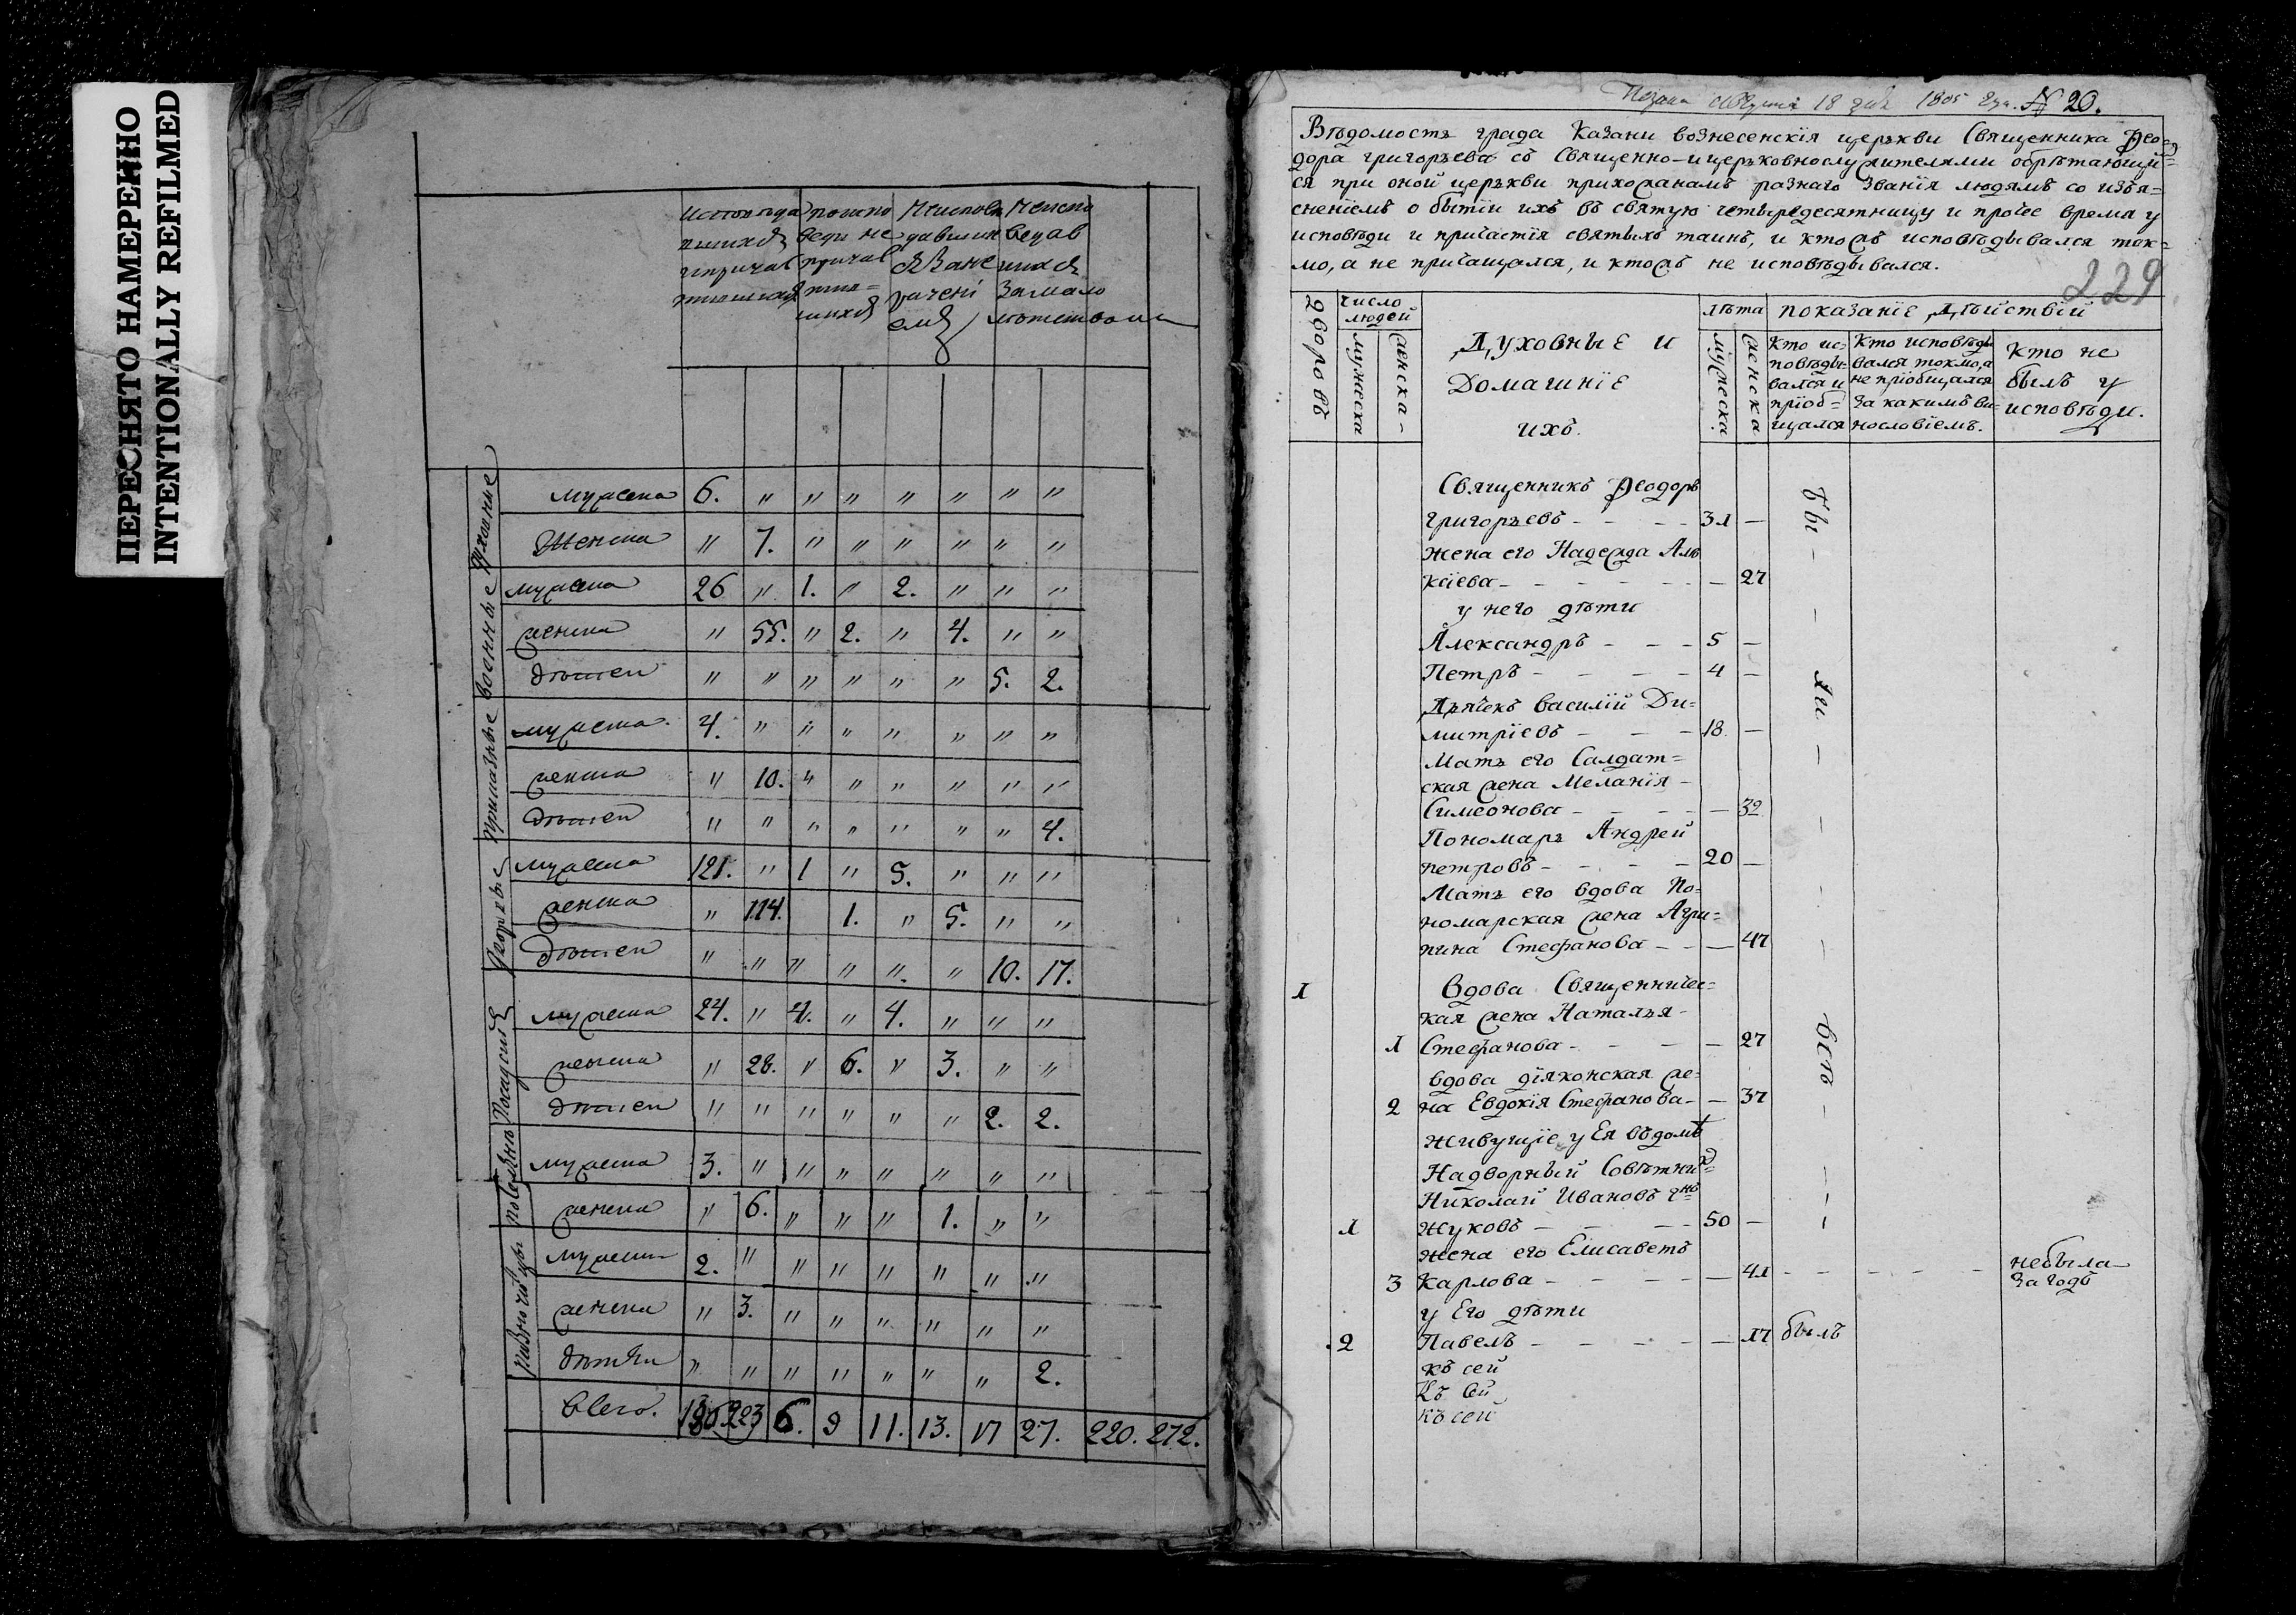 ПЕРЕСНЯТО НАМЕРЕННО
INTENTIONALLY REFILMED
исповѣда
вшихся
и причас
тившихся
Духовные
мужеска 6. " " " " " " "
Женска " 7. " " " " " "
военные
мужеска 26 " 1. " 2. " " "
женска " 55. " 2. " 4. " "
дѣтей " " " " " " 5. 2.
приказные
мужеска 4. " " " " " " "
женска " 10. " " " " " "
дѣтей " " " " " " " 4.
Дворовые
мужеска 121. " 1 " 5. " " "
женска " 114. 1. " 5. " "
дѣтей " " " " " " 10. 17.
Посадские
мужеска 24. " 4. " 4. " " "
женска " 28. " 6. " 3. " "
дѣтей " " " " " " 2. 2.
мужеска 3. " " " " " " "
женска " 6. " " " 1. " "
мужеска 2. " " " " " " "
женска " 3. " " " " " "
дѣтей " " " " " " " 2.
Всего. 223 6. 9 11. 13. 17 27. 220. 272.
18 1805 №20.
Вѣдомость града Казани вознесенскія церькви Священника Ѳео=
дора григорьева съ Священно-и церьковнослужителями обрѣтающим=
ся при оной церькви прихожанамъ разнаго званія людямъ со изъя=
сненіемъ о бытіи ихъ въ святую четыредесятницу и протчее время у
исповѣди и причастія святыхъ таинъ, и ктожъ исповѣдывался ток=
мо, а не причащался, и ктожъ не исповѣдывался.
229
Дворовъ
число
людей
мужеска
женска-
Духовные и
Домашніе
ихъ.
лѣта
мужеска.
женска
показаніе дѣйствій
Кто ис=
повѣды=
вался и
пріоб=
щался
Кто исповѣды
вался токмо, а
не пріобщался
за какимъ ви=
нословіемъ.
Кто не
былъ у
исповѣди.
Священникъ Ѳеодоръ
григорьевъ - - - - 31 —
жена его Надежда Але
кѣева - - - - - — 27
у него дѣти
Александръ - - - 5 —
Петръ - - - - 4 —
Дьячекъ василій Ди=
митріевъ - - - 18. —
Мать его Салдат=
ская жена Меланія -
Симеонова - - - - — 32
Пономарь Андрей
петровъ - - - - 20 —
Мать его вдова По=
номарская жена Агри=
пина Стефанова - - — 47
бы - - ли - - - - всѣ -
1 Вдова Священничес=
кая жена Наталья -
1 Стефанова - - - — 27
вдова діяконская же=
2 на Евдокія Стефанова - — 37
живущіе у Ея въ домѣ
Надворный Совѣтникъ
Николай Ивановъ сынъ
1 Жуковъ - - - - 50 —
жена его Елисаветъ
3 Карлова - - - - — 41 - - - - - небыла
за годъ
у Его дѣти
2 Павелъ - - - - — 17 былъ
къ сей
Къ Сей
къ сей